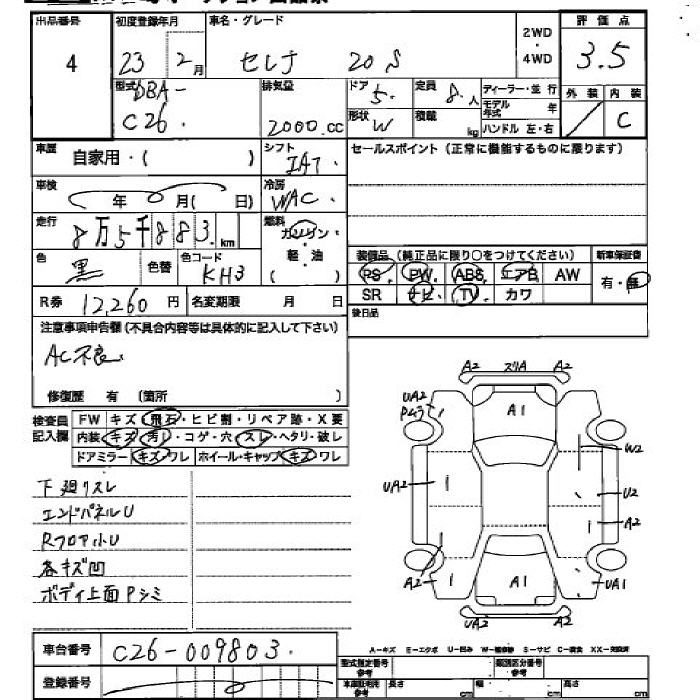 出品番号 初度登録年月 車名・グレード 2WD ・ 4WD 評価点
4 23 2月 セレナ 20S 3.5
型式 DBA- 排気量 ドア 5. 定員 8.人 ディーラー・並行 外装 内装
C26. 2000.cc 形状 W 積載 kg モデル年式 年 ハンドル 左・右 C
車歴 自家用・( ) シフト IAT. セールスポイント(正常に機能するものに限ります)
車検 年 月( 日) 冷房 WAC.
走行 8万5千883.km 燃料 ガソリン・軽・油( )
色 黒 色替 色コード KH3 装備品(純正品に限り○をつけてください) 新車保証書
PS PW ABS エアB AW 有・無
SR ナビ TV カワ
R券 12,260円 名変期限 月 日 後日品
注意事項申告欄(不具合内容等は具体的に記入して下さい)
AC不良
修復歴 有(箇所 )
検査員記入欄 FW キズ・飛石・ヒビ割・リペア跡・X要
内装 キズ・汚レ・コゲ・穴・スレ・ヘタリ・破レ
ドアミラー キズ・ワレ ホイール・キャップ キズ・ワレ
下廻リスレ
エンドパネルU
Rフロア小U
各キズ凹
ボディ上面Pシミ
A2 スリA A2
UA2
A1
W2
UA2 1 U2
1 A2
A2 1 A1 UA1
UA2 A2
車台番号 C26-009803.
A-キズ E-エクボ U-凹み W-補修跡 S-サビ C-腐食 XX-交換済
登録番号
型式指定番号 参考 類別区分番号 参考
車庫証明用 参考 長さ cm 幅 cm 高さ cm